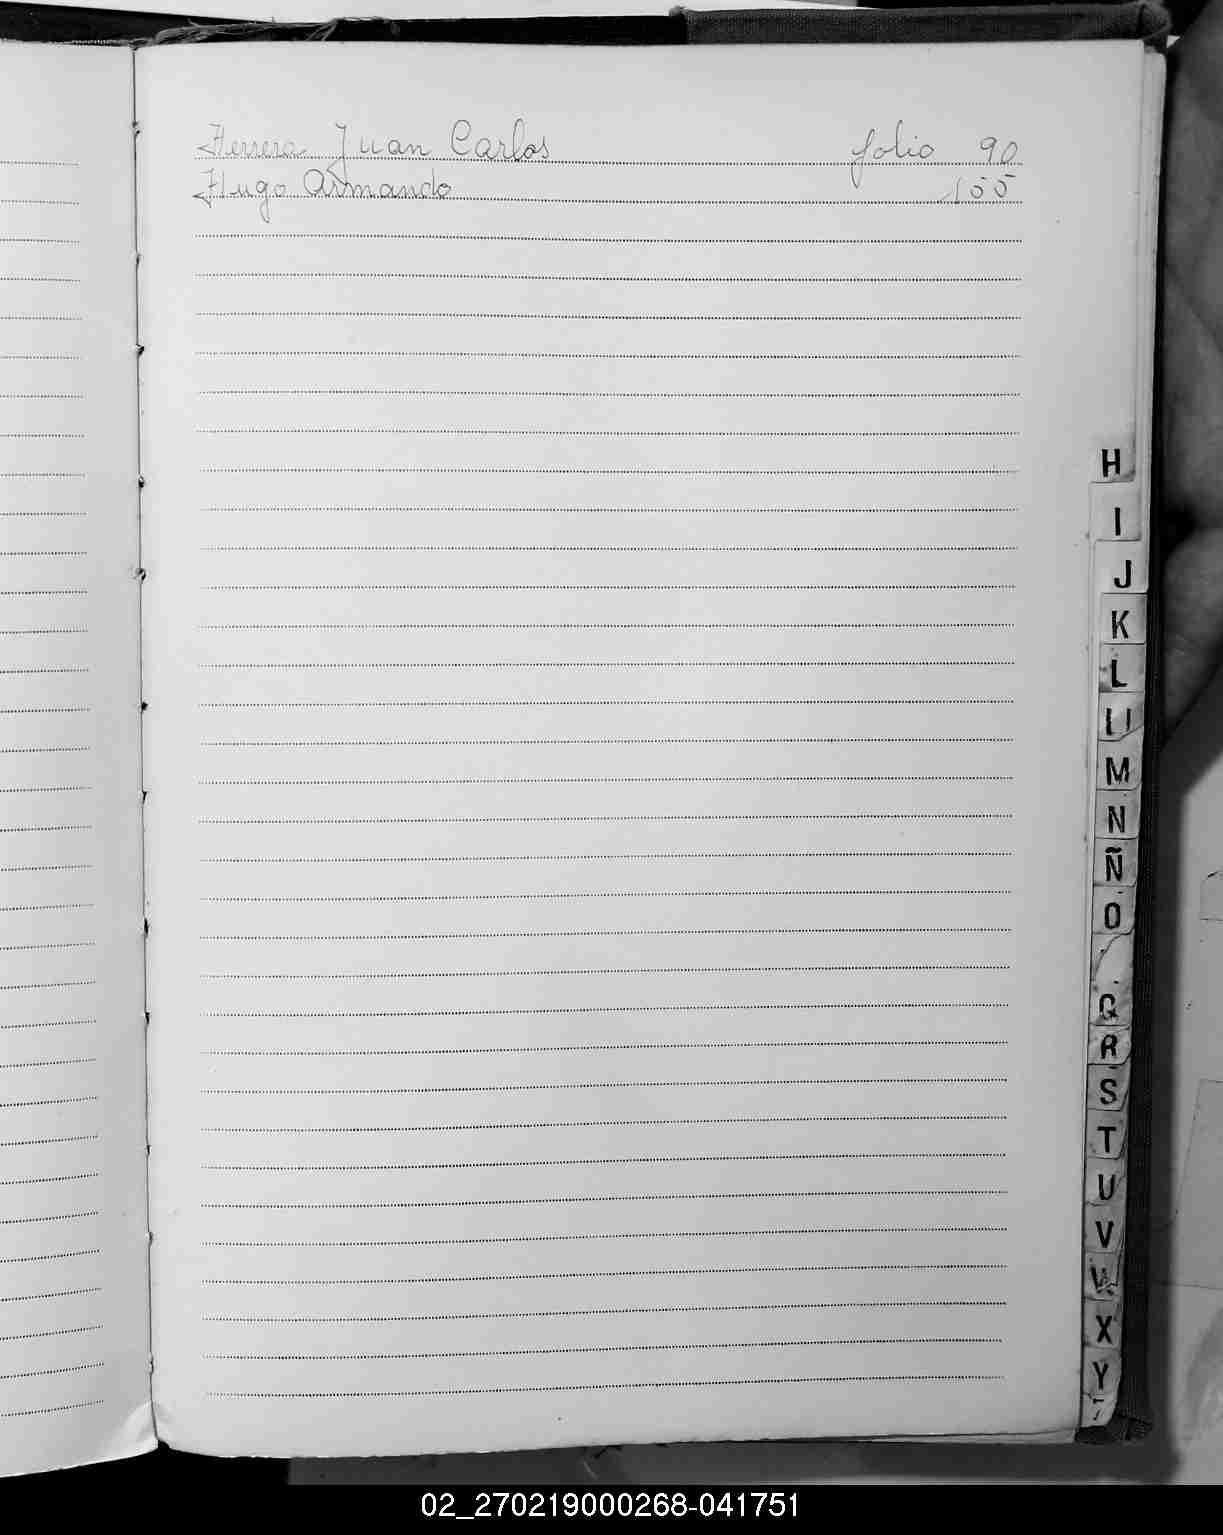 Herrera Juan Carlos folio 90
Hugo Armando 155
H
I
J
K
L
M
N
Ñ
O
Q
R
S
T
U
V
W
X
Y
02_270219000268-041751